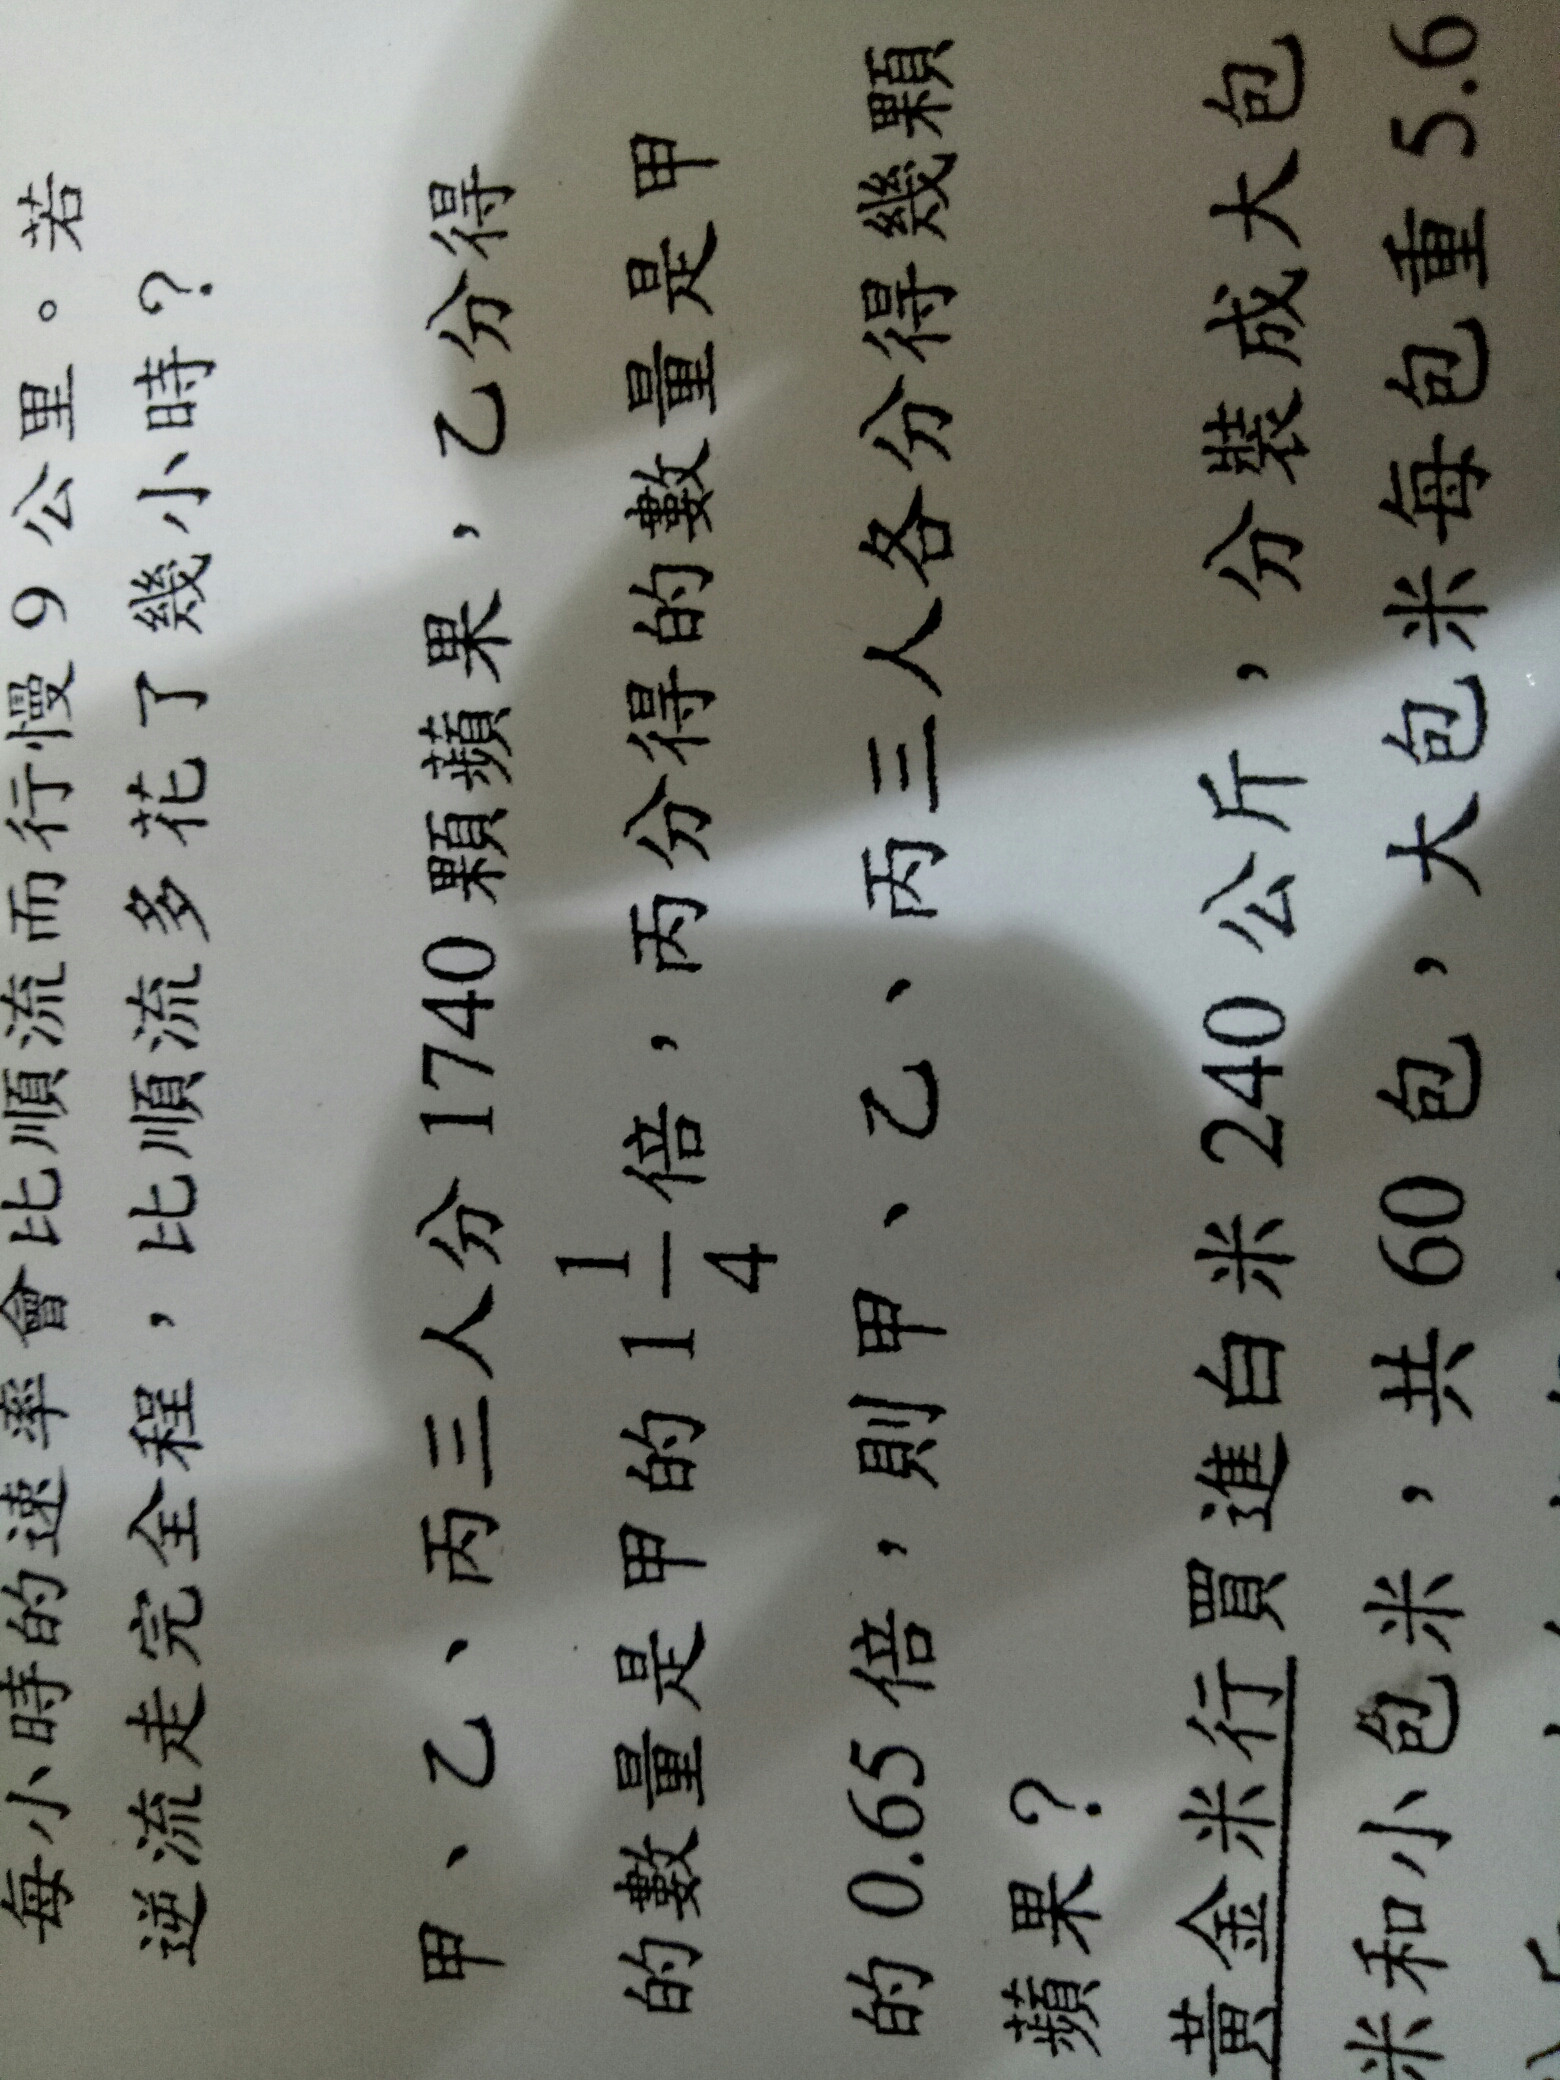 每小時的速率會比順流而行慢 9 公里。若
逆流走完全程，比順流多花了幾小時？
甲、乙、丙三人分 1740 顆蘋果，乙分得
的數量是甲的 1 1/4 倍，丙分得的數量是甲
的 0.65 倍，則甲、乙、丙三人各分得幾顆
蘋果？
黃金米行買進白米 240 公斤，分裝成大包
米和小包米，共 60 包，大包米每包重 5.6